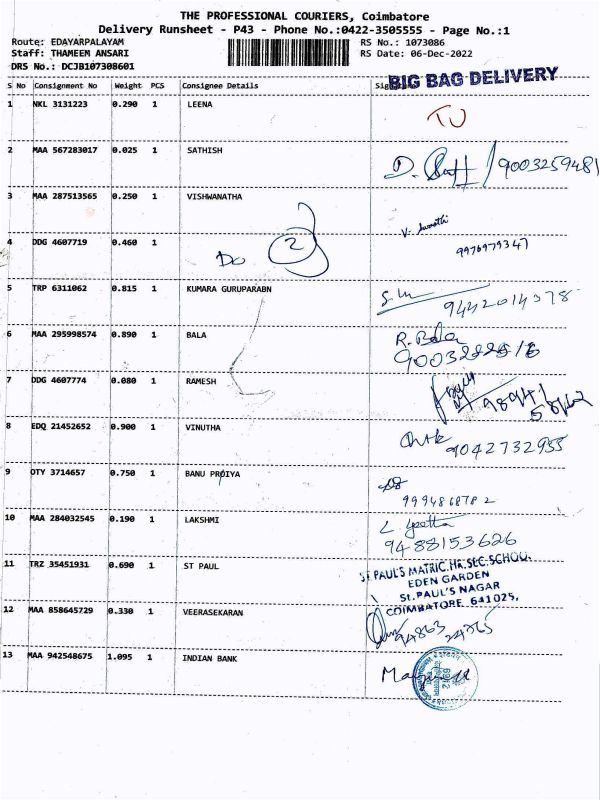 THE PROFESSIONAL COURIERS, Coimbatore
Delivery Runsheet - P43 - Phone No.:0422-3505555 - Page No.:1
Route: EDAYARPALAYAM
RS No.: 1073086
Staff: THAMEEM ANSARI
RS Date: 06-Dec-2022
DRS No.: DCJB107308601
BIG BAG DELIVERY
S No Consignment No Weight PCS Consignee Details
1 NKL 3131223 0.290 1 LEENA
2 MAA 567283017 0.025 1 SATHISH 9003259481
3 MAA 287513565 0.250 1 VISHWANATHA
4 DDG 4607719 0.460 1 Do 2 9976979347
5 TRP 6311062 0.815 1 KUMARA GURUPARABN 9442014378
6 MAA 295998574 0.890 1 BALA R. Bala
7 DDG 4607774 0.080 1 RAMESH
8 EDQ 21452652 0.900 1 VINUTHA 9042732955
9 OTY 3714657 0.750 1 BANU PROIYA 9994868782
10 MAA 284032545 0.190 1 LAKSHMI 9488153626
11 TRZ 35451931 0.690 1 ST PAUL
ST.PAUL'S MATRIC.HR.SEC.SCHOOL
EDEN GARDEN
St.PAUL'S NAGAR
COIMBATORE. 641025,
12 MAA 858645729 0.330 1 VEERASEKARAN 94863 24765
13 MAA 942548675 1.095 1 INDIAN BANK